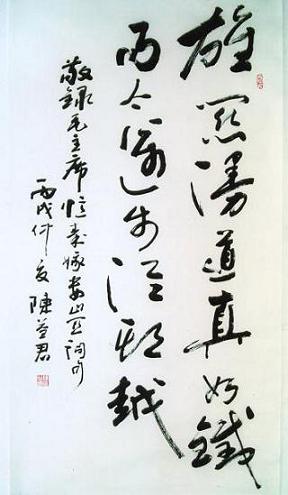 雄關漫道真如鐵
而今邁步從頭越
敬録毛主席憶秦娥婁山関詞句
丙戌仲夏